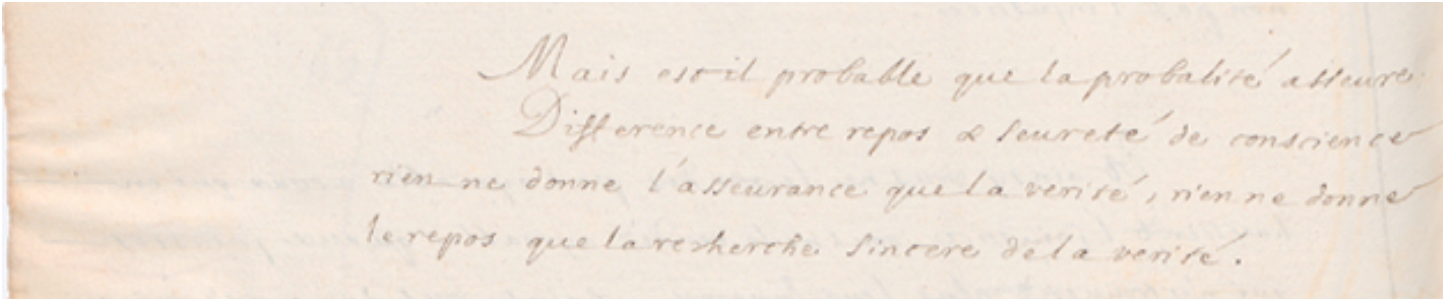 Mais est il probable que la probalité asseure
Difference entre repos & seureté de conscience
rien ne donne l'asseurance que la verité, rien ne donne
le repos que la recherche sincere de la verité.